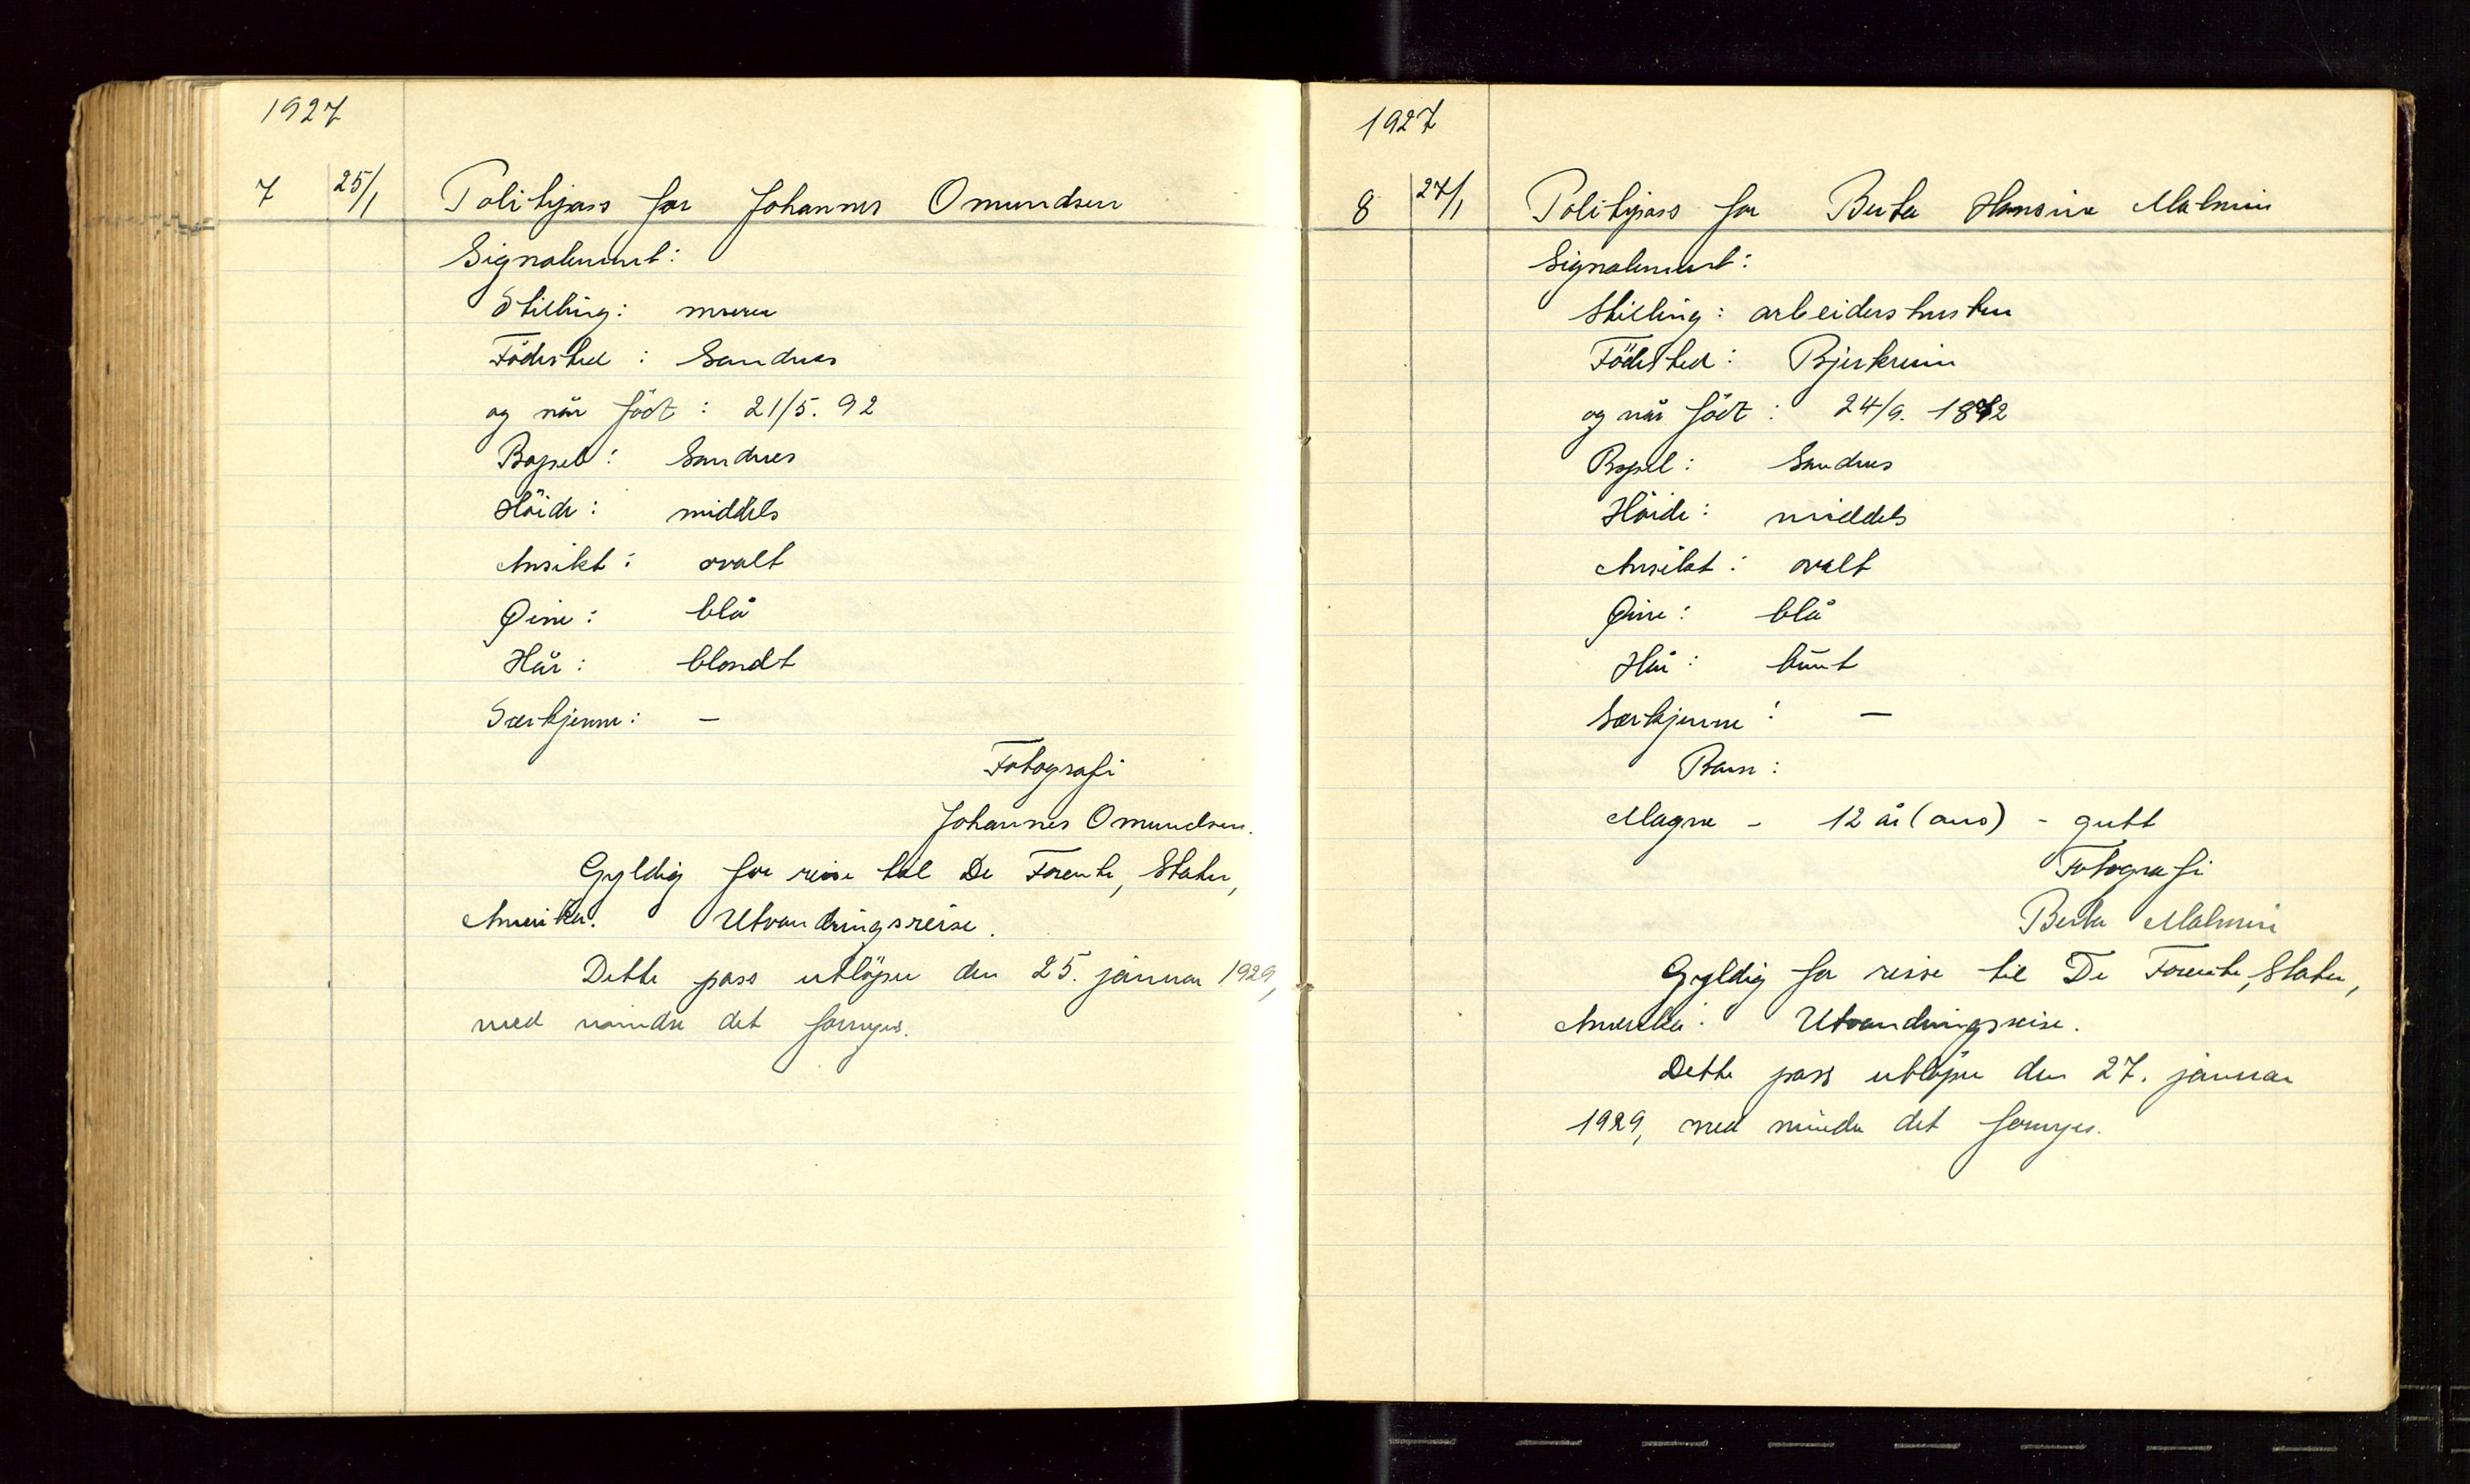 1927
7 25/1 Politipass for Johannes Omundsen
Signalement:
Stilling: murer
Födested: Sandnes
og når födt: 21/5. 92
Bopæl: Sandnes
Höide: middels
Ansikt: ovalt
Øine: blå
Hår: blondt
Særkjenne: —
Fotografi
Johannes Omundsen.
Gyldig for reise til De Forente, Stater,
Amerika. Utvandringsreise.
Dette pass utlöper den 25. januar 1929,
med mindre det fornyes.
1927
8 27/1 Politipass for Berta Hansine Malmin
Signalement:
Stilling: arbeidershustru
Födested: Bjerkreim
og når födt: 24/9.
Bopel: Sandnes
Höide: middels
Ansikt: ovalt
Øine: blå
Hår: brunt
Særkjenne: —
Barn:
Magne - 12 år (ans) - gutt
Fotografi
Berta Malmin
Gyldig for reise til De Forente, Stater,
Amerika. Utvandringsreise.
Dette pass utlöper den 27. januar
1929, med mindre det fornyes.